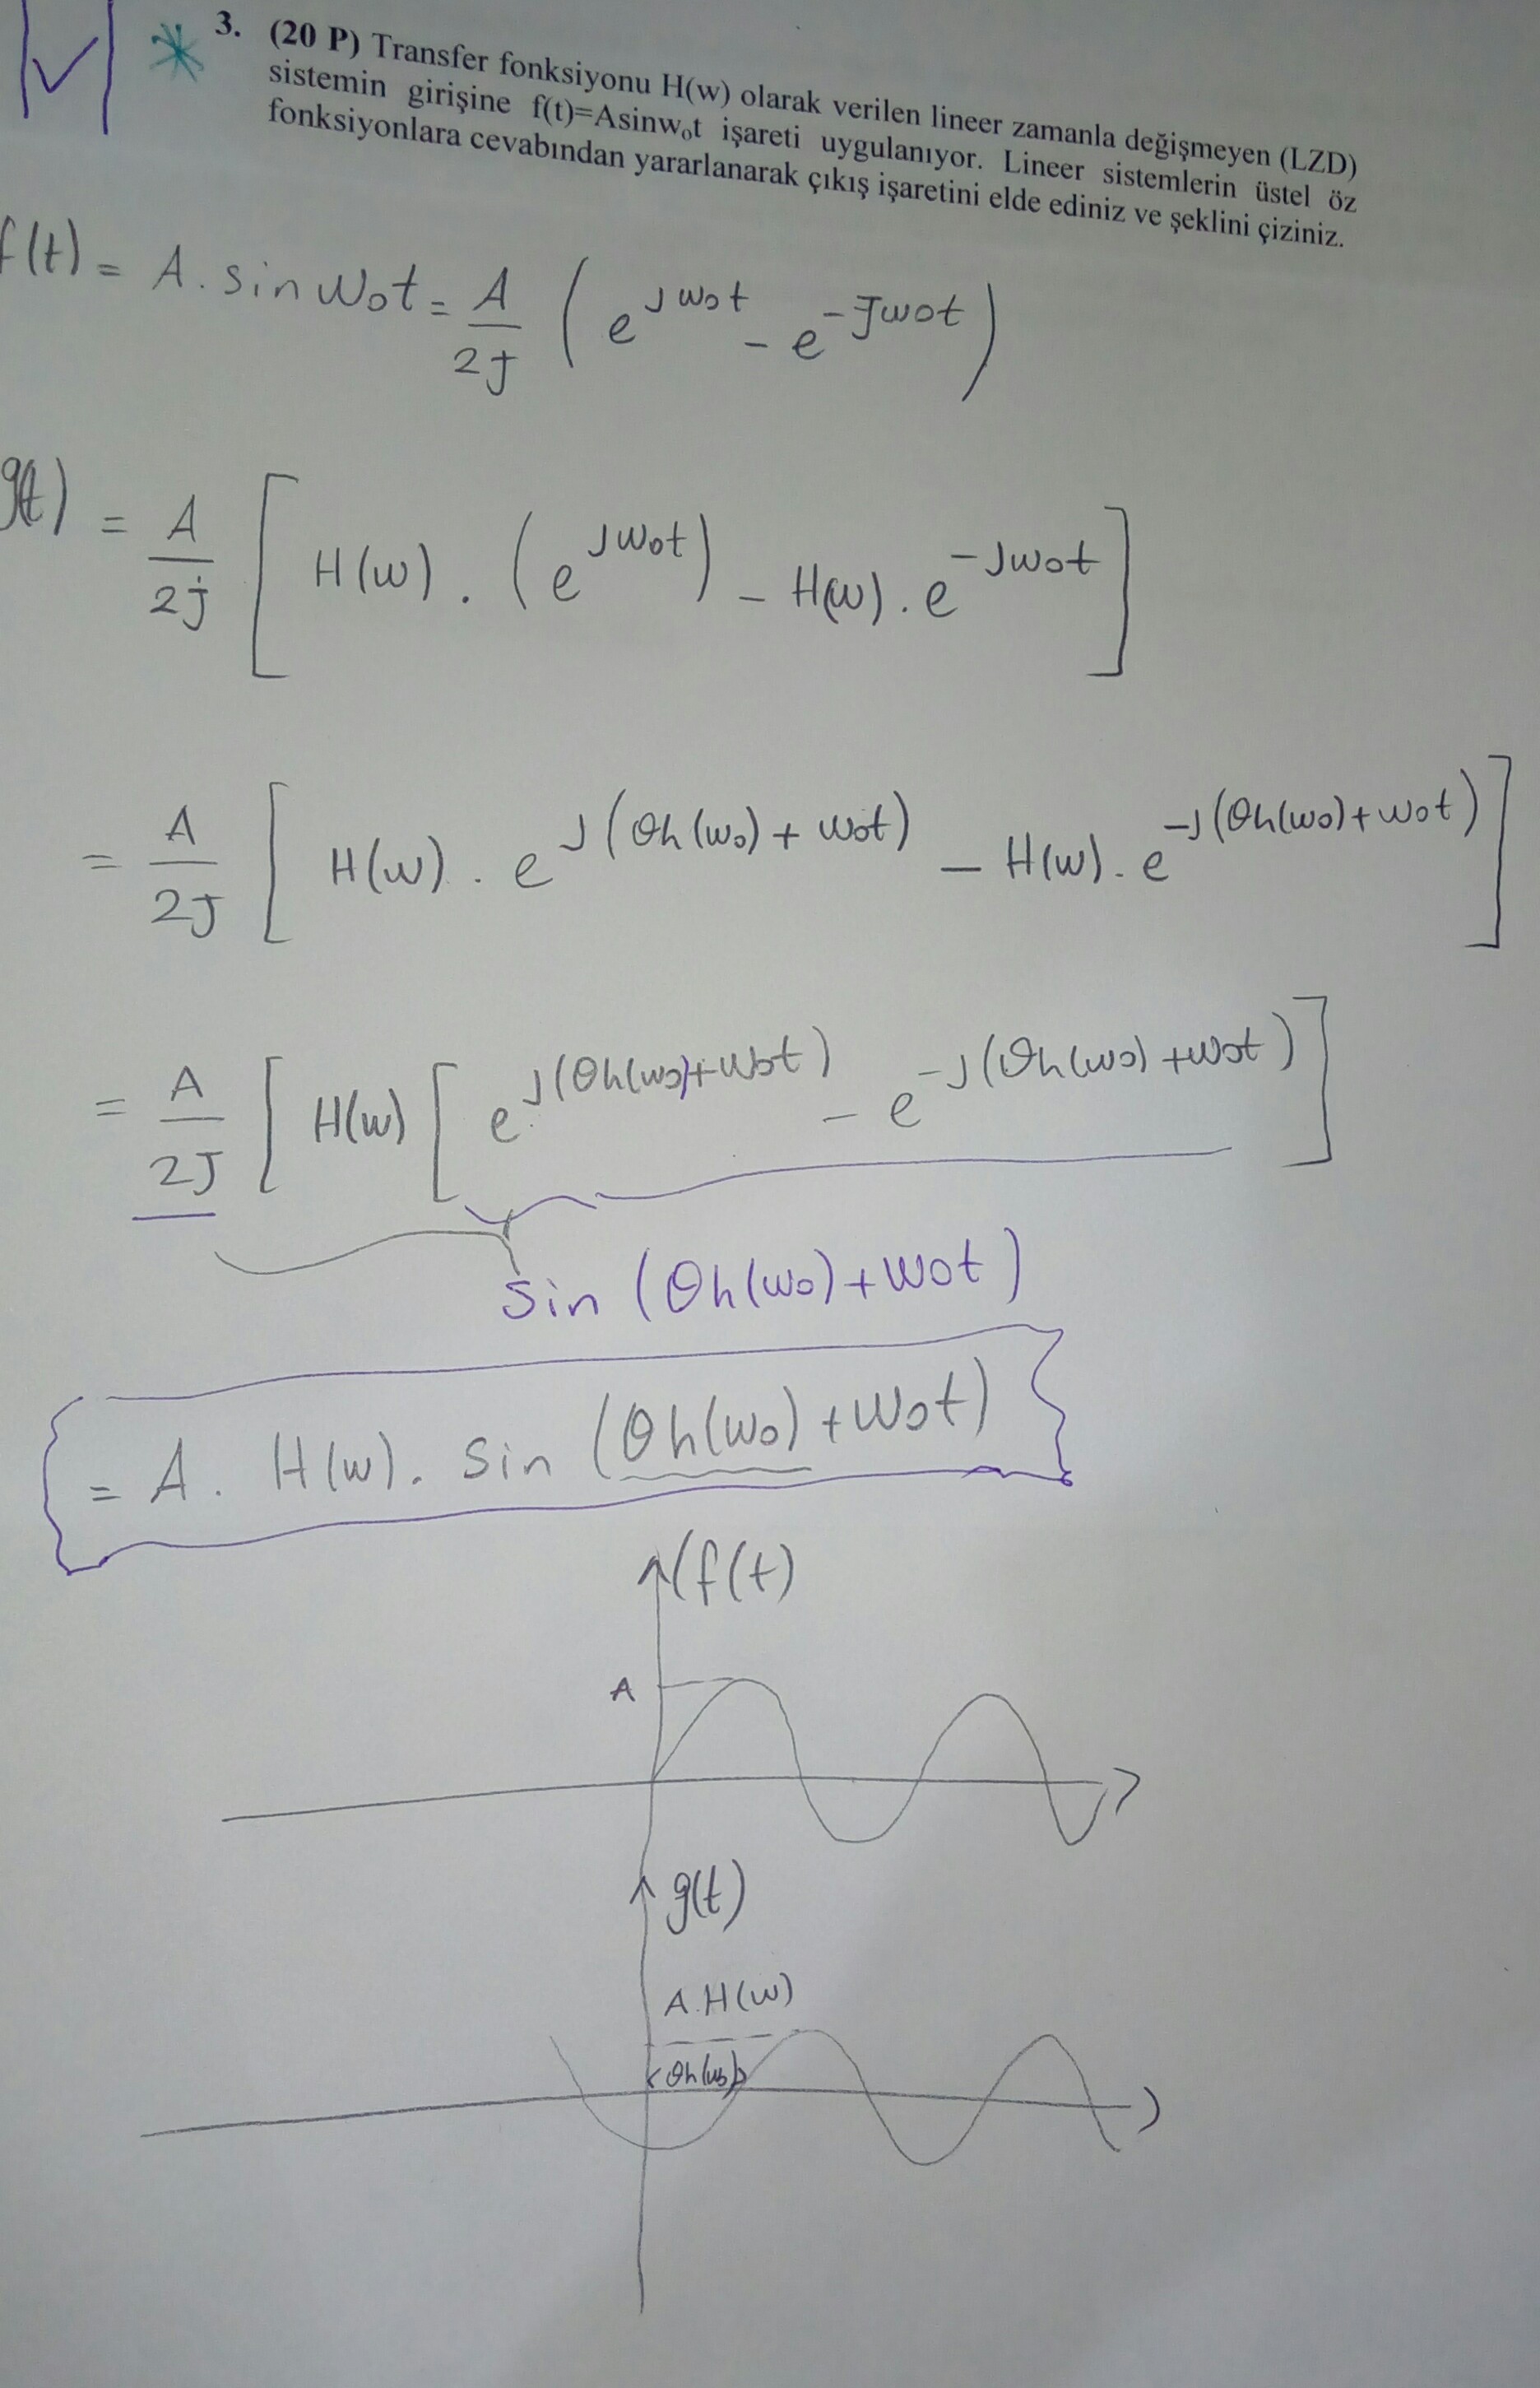 3. (20 P) Transfer fonksiyonu H(w) olarak verilen lineer zamanla değişmeyen (LZD)
sistemin girişine f(t)=Asinw₀t işareti uygulanıyor. Lineer sistemlerin üstel öz
fonksiyonlara cevabından yararlanarak çıkış işaretini elde ediniz ve şeklini çiziniz.
f(t) = A . sin w₀t = A/2J (e^(Jw₀t) - e^(-Jw₀t))
g(t) = A/2j [ H(w) . (e^(Jw₀t)) - H(w) . e^(-Jw₀t) ]
= A/2J [ H(w) . e^(J(θh(w₀) + w₀t)) - H(w) . e^(-J(θh(w₀) + w₀t)) ]
= A/2J [ H(w) [ e^(J(θh(w₀)+w₀t)) - e^(-J(θh(w₀)+w₀t)) ]
sin (θh(w₀)+w₀t)
= A . H(w) . sin (θh(w₀) + w₀t)
f(t)
A
g(t)
A.H(w)
θh(w₀)